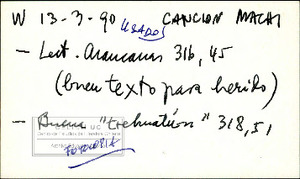 W 13-3-90 USADOS CANCION MACHI
- Lect. Araucanas 316, 45
(buen texto para herido)
- Buena "trehuatúen" 318, 51
FOTOCOPIA